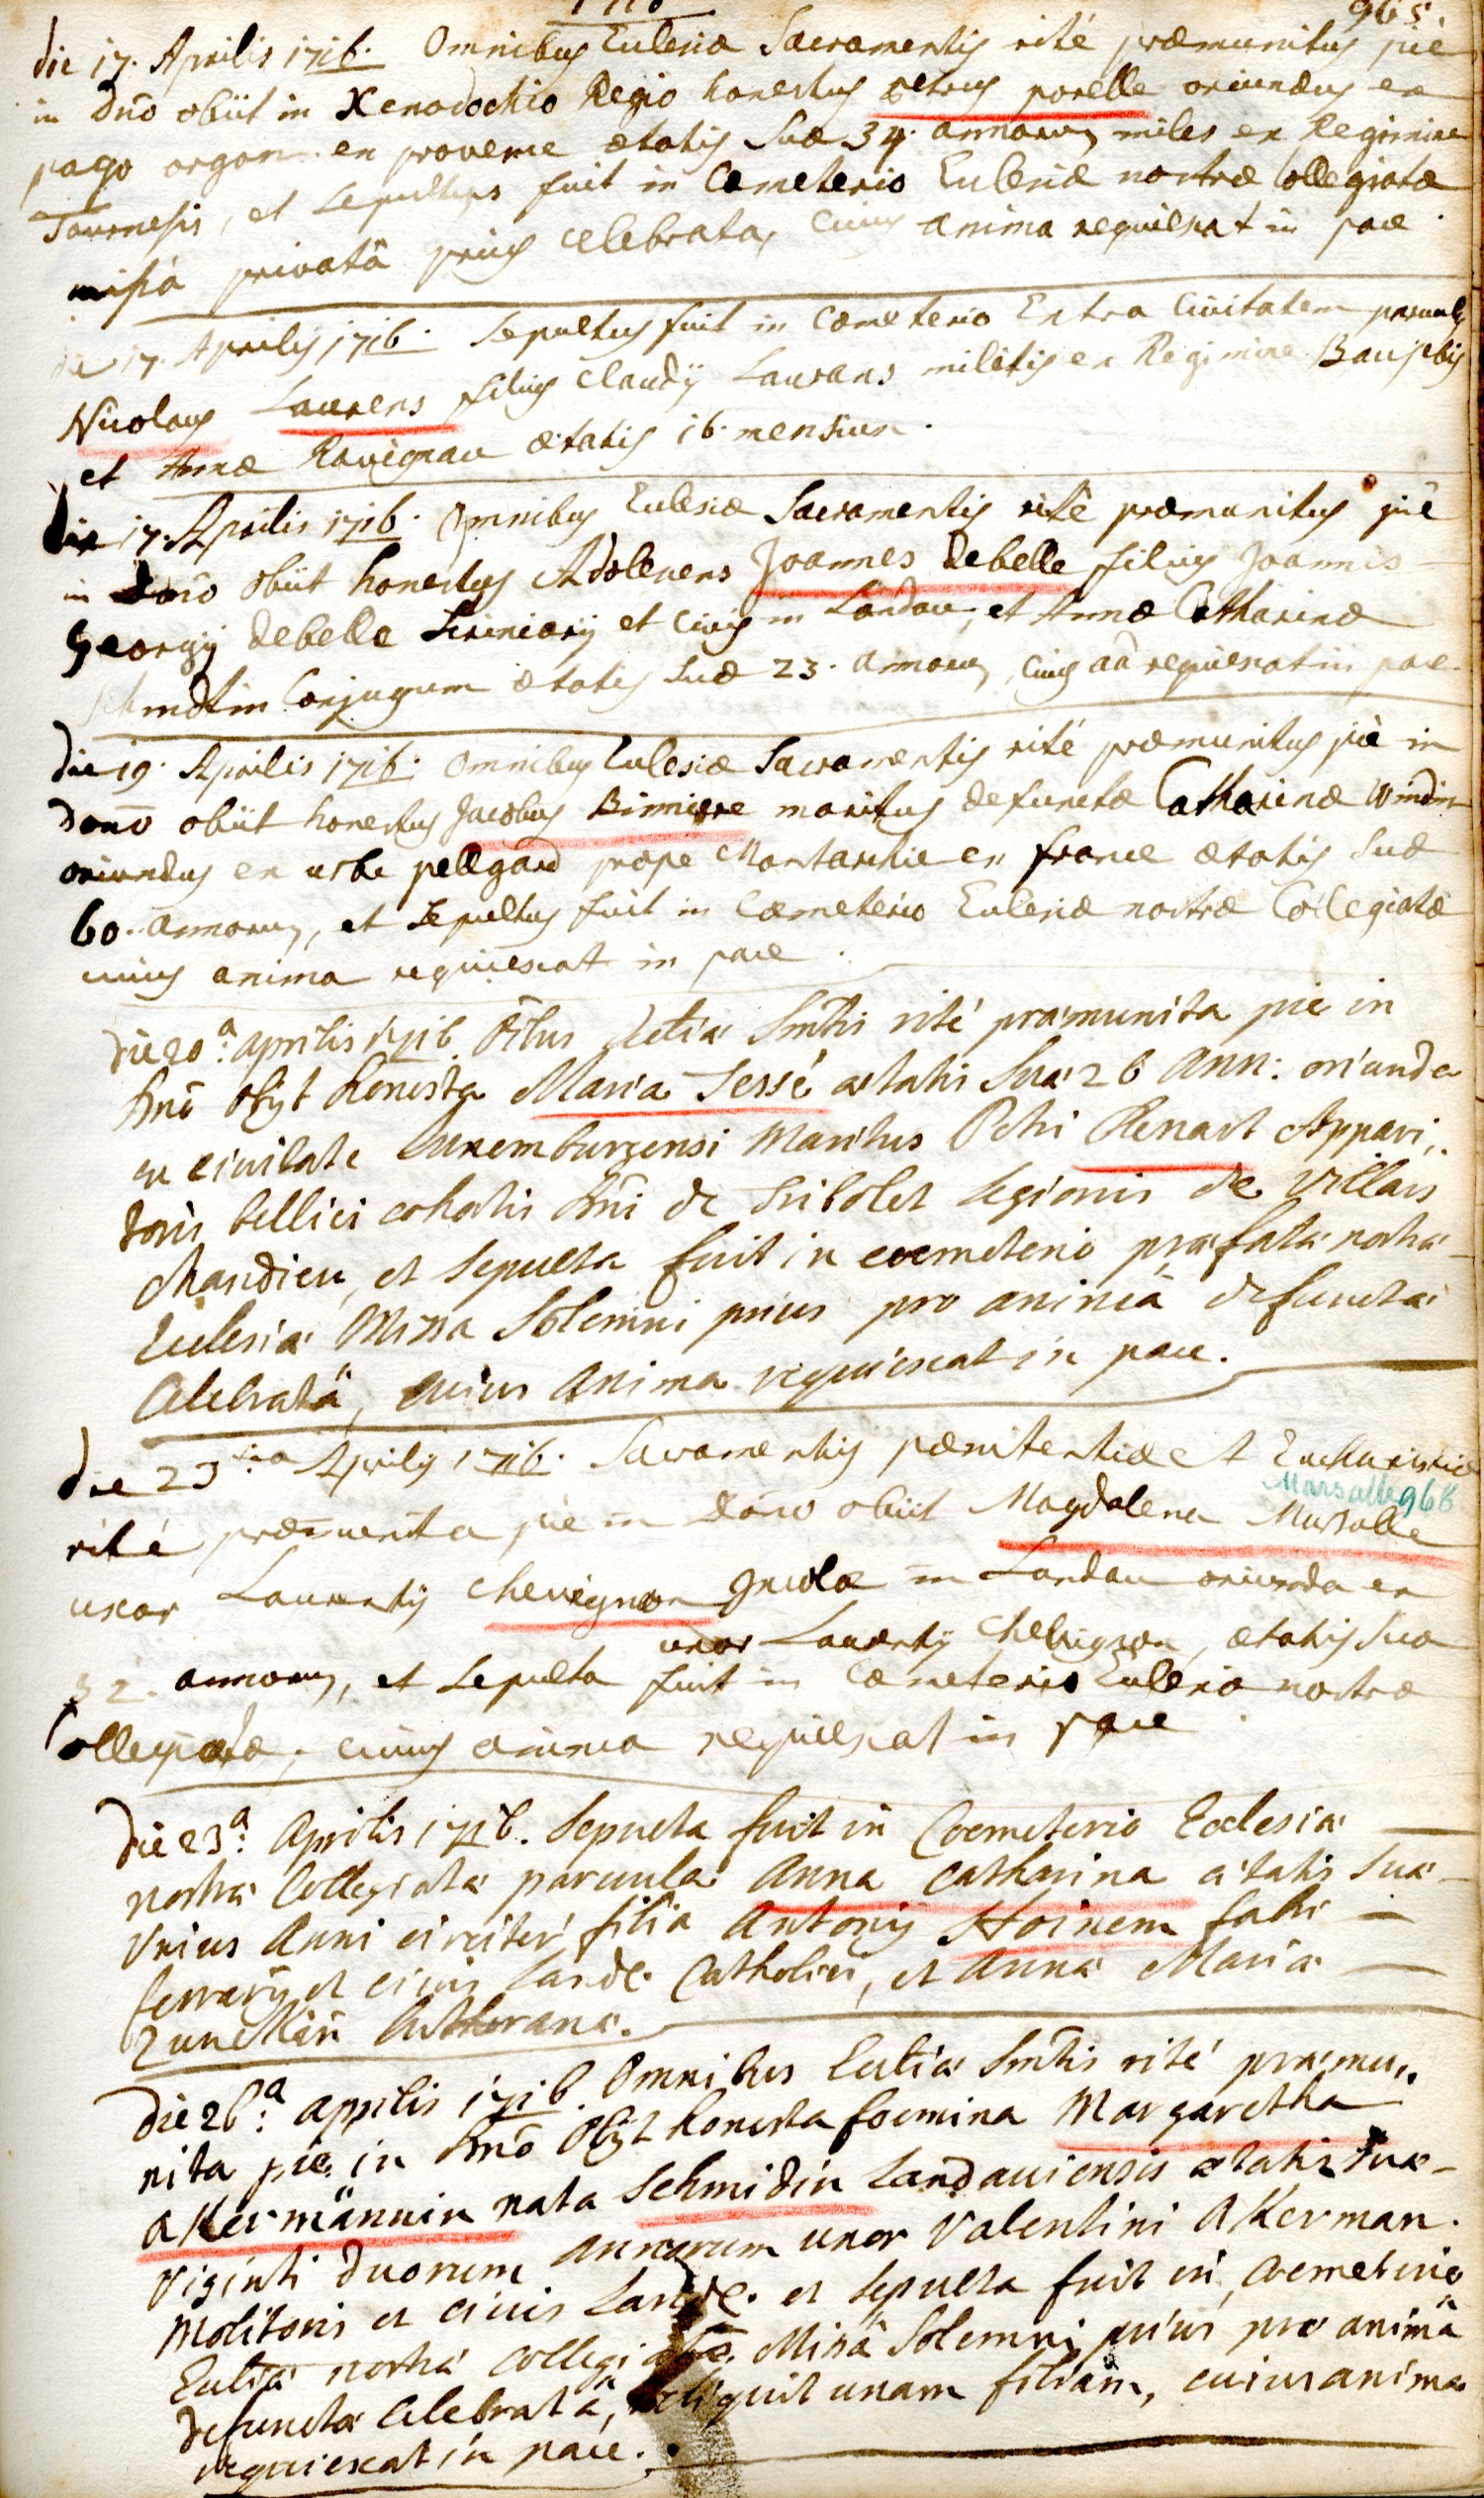 1716
965.
die 17. Aprilis 1716. Omnibus Ecclesiæ Sacramentis rité præmunitus piè
in Dno obiit in Xenodochio Regio honestus petrus porelle oriundus ex
pago orgon ex provence ætatis Suæ 34. annorum miles ex Regimine
Tournesis, et Sepultus fuit in Cœmeterio Ecclesiæ nostræ Collegiatæ
missâ privatâ prius celebrata, cuius anima requiescat in pace.
die 17. Aprilis 1716. Sepultus fuit in Cœmeterio Extra Civitatem parvulus
Nicolaus Laurens filius Claudÿ Laurans militis ex Regimine
et Annæ Ravignau ætatis 16. mensium.
die 17. Aprilis 1716. Omnibus Ecclesiæ Sacramentis rité præmunitus piè
in Dno obiit honestus Adolescens Joannes Debelle filius Joannis
Georgÿ Debelle Scriniarÿ et Civis in Landau, et Annæ Catharinæ
Schmidtin Conjugum ætatis Suæ 23. annorum, Cuius aâ requiescat in pace.
die 19. Aprilis 1716. Omnibus Ecclesiæ Sacramentis rité præmunitus piè in
Dono obiit honestus Jacobus Binniere maritus defunctæ Catharinæ
oriundus ex urbe pellgard prope Montarchie en france ætatis Suæ
60. annorum, et Sepultus fuit in Cœmeterio Ecclesiæ nostræ Collegiatæ
cuius anima requiescat in pace.
Die 20ª: aprilis 1716. Oibus Ecclíæ Smtis rité præmunita pie in
Dnō Obÿt honesta Maria Jessé ætatis Suæ 26 Ann: oriunda
ex civitate Luxemburgensi Maritus Petri Renart Appari,,
toris bellici cohortis Dni de Legionis de Villars
Chandieu, et Sepulta fuit in coemeterio præfatæ nostræ
Ecclesiæ Missa Solemni prius pro animâ defunctæ
Celebratâ, cuius Anima requiescat in pace.
die 23tia Aprilis 1716. Sacramentis pœnitentiæ et Eucharistiæ
Marsalle 968
rité præmunita piè in Dōno obiit Magdalena Mussalle
uxor Laurentÿ Chevignon Incolæ in Landau oriunda ex
uxor Laurentÿ Chevignon, ætatis Suæ
32. annorum, et Sepulta fuit in Cœmeterio Ecclesiæ nostræ
Collegiatæ, cuius anima requiescat in pace.
Die 23ª: Aprilis 1716. Sepulta fuit in Coemeterio Ecclesiæ
nostræ Collegiatæ parvula Anna Catharina ætatis Suæ
Unius Anni circiter filia Antonÿ Hoinem fabri
ferrarÿ et civis Landc. Catholici, et Annæ Mariæ
Zuncklin Lutheranæ.
Die 26ª: Apprilis 1716. Omnibus Ecclíæ Smtis rité præmu,,
nita pie in Dnō Obÿt honesta foemina Margaretha
Akermännin nata Schmidin Landauiensis ætatis Suæ
Viginti duorum annorum uxor Valentini AKerman.
Molitoris et civis Landc. et sepulta fuit in Coemeterio
Ecclíæ nostræ Collegiatæ. Missâ Solemni prius pro animâ
defunctæ Celebratâ, reliquit unam filiam, cuius anima
requiescat in pace.